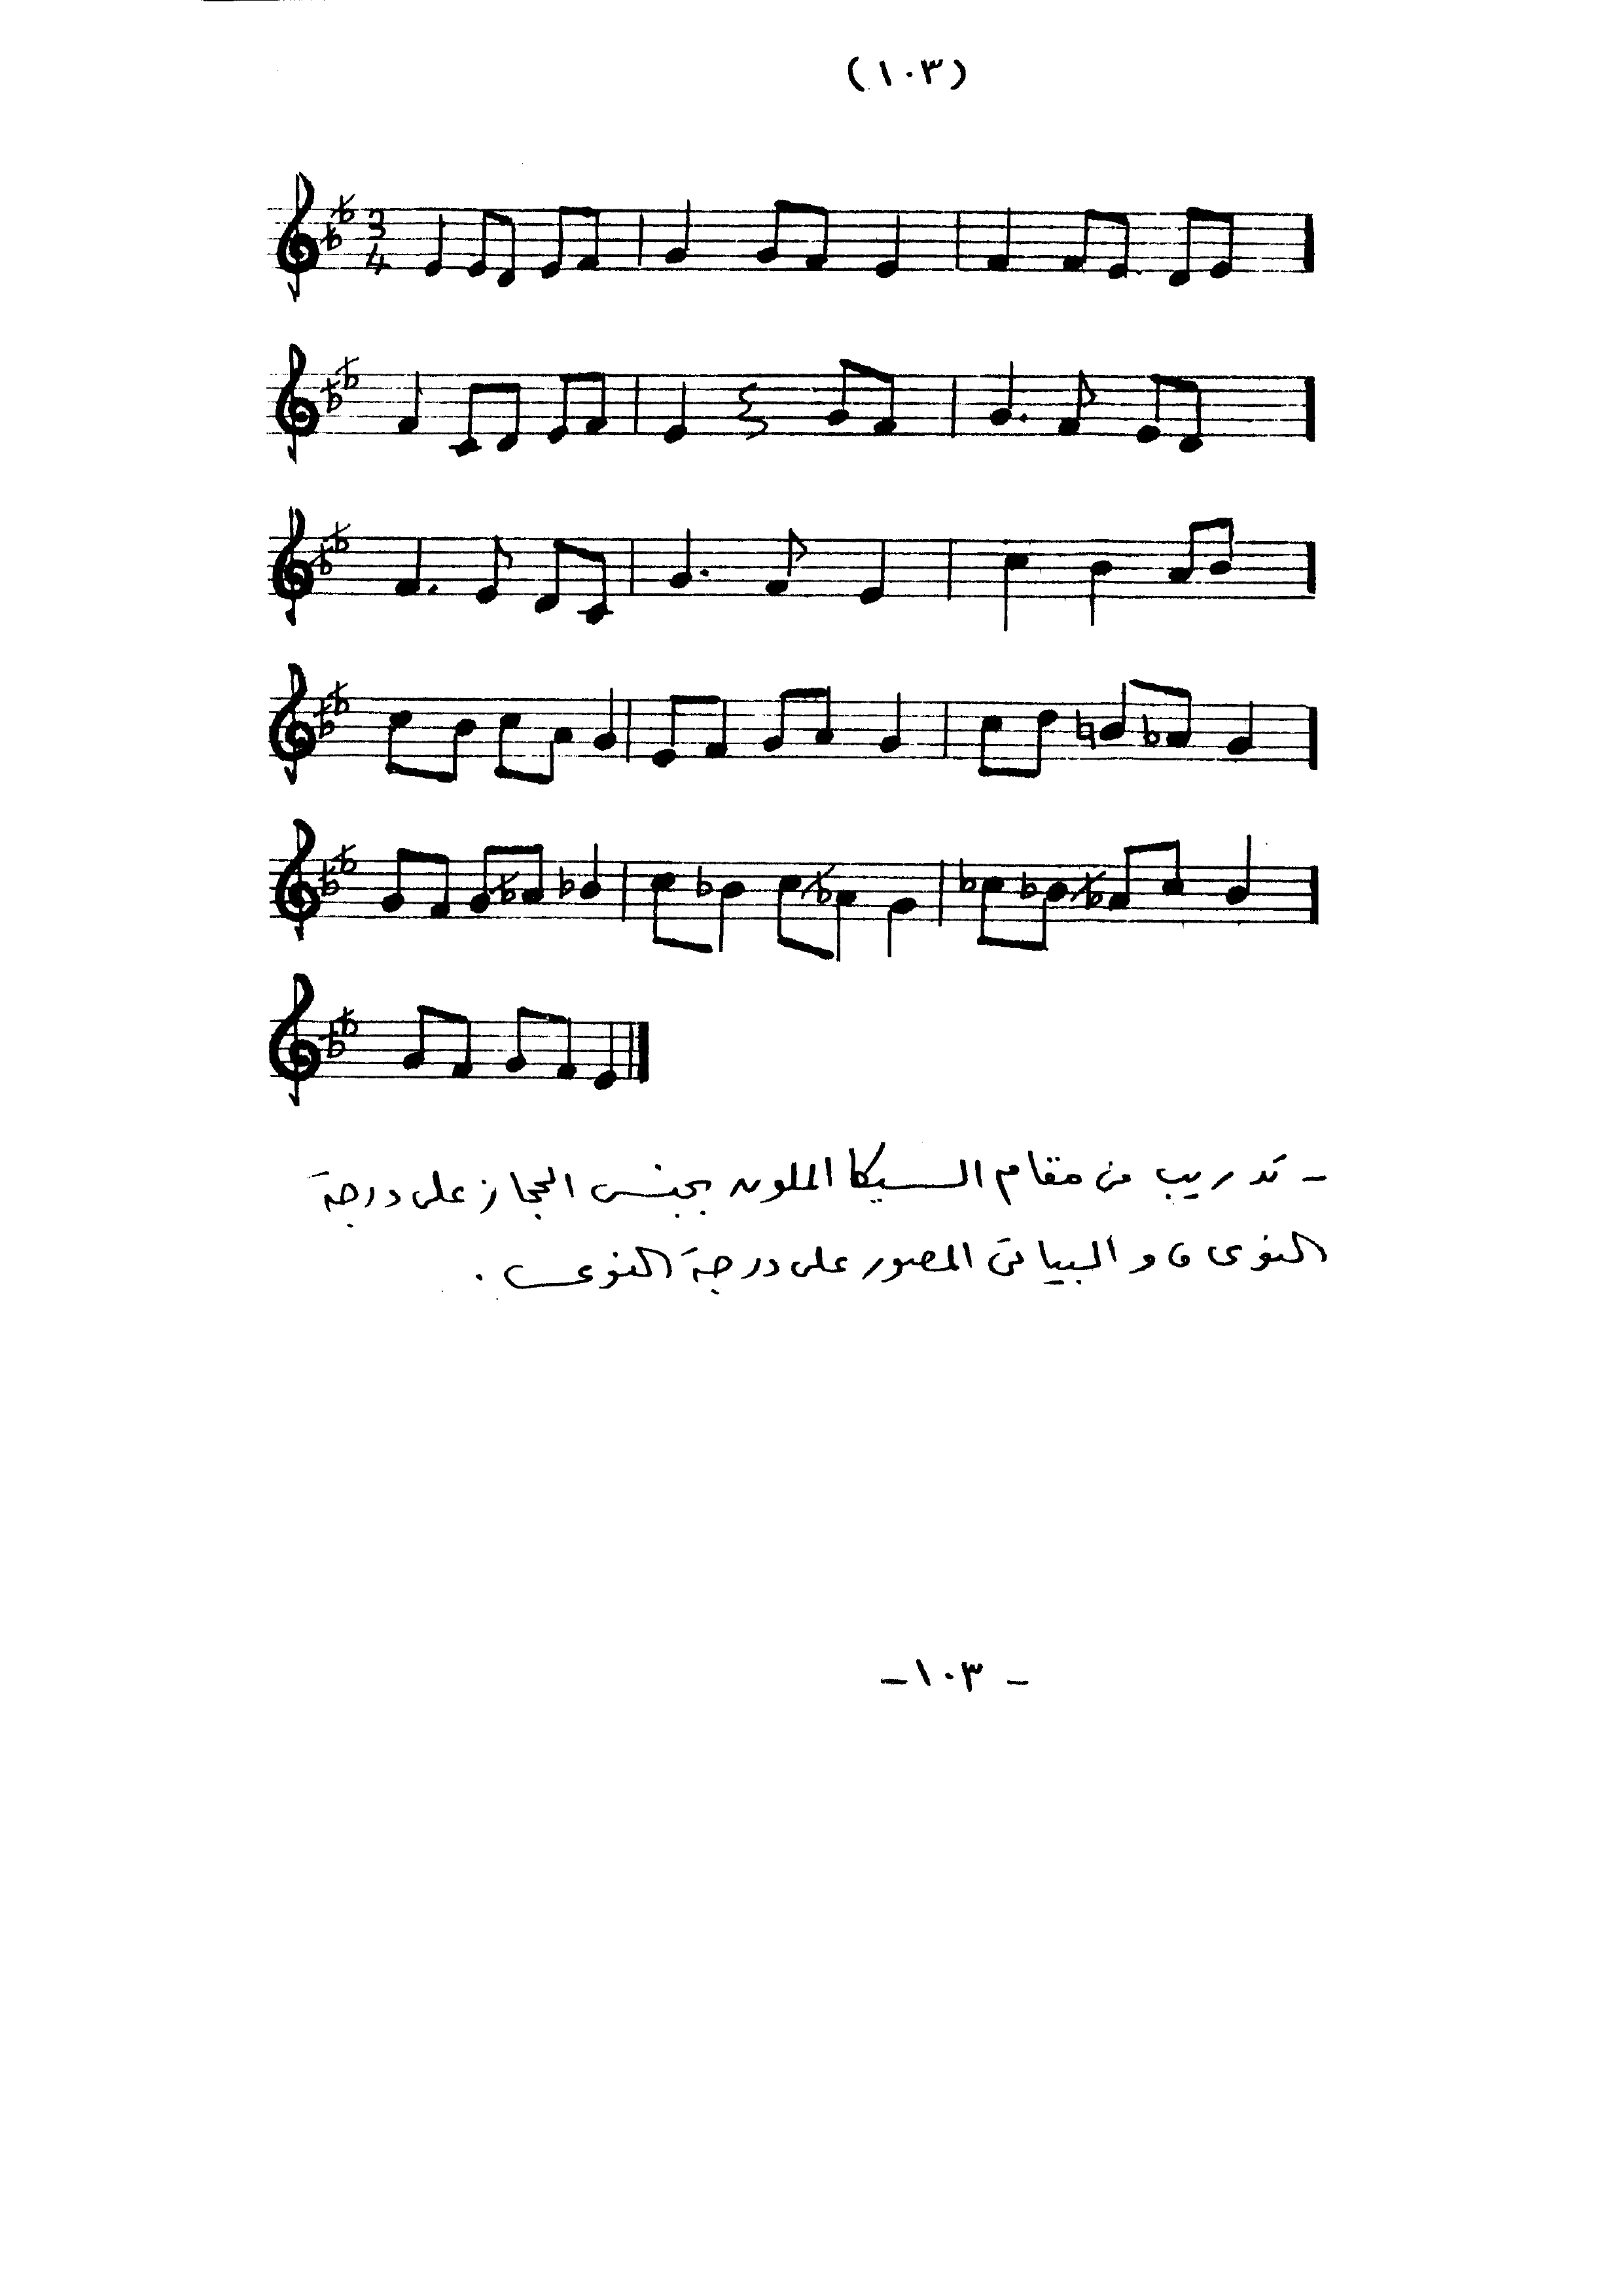 (١٠٣)
3
4
- تدريب من مقام السيكا الملون بجنس الحجاز على درجة
النوى ، و البياتى المصور على درجة النوى .
- ١٠٣ -